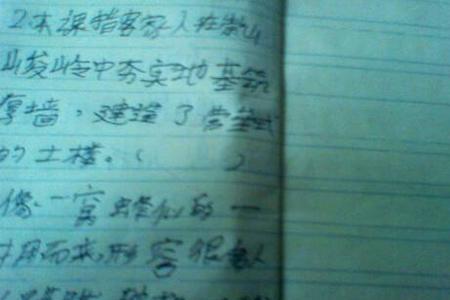 2.本课指客家人在崇山
峻岭中夯实地基筑
厚墙，建造了营垒式
的土楼。（　　）
像一窝蜂似的一
拥而来,形容很多人